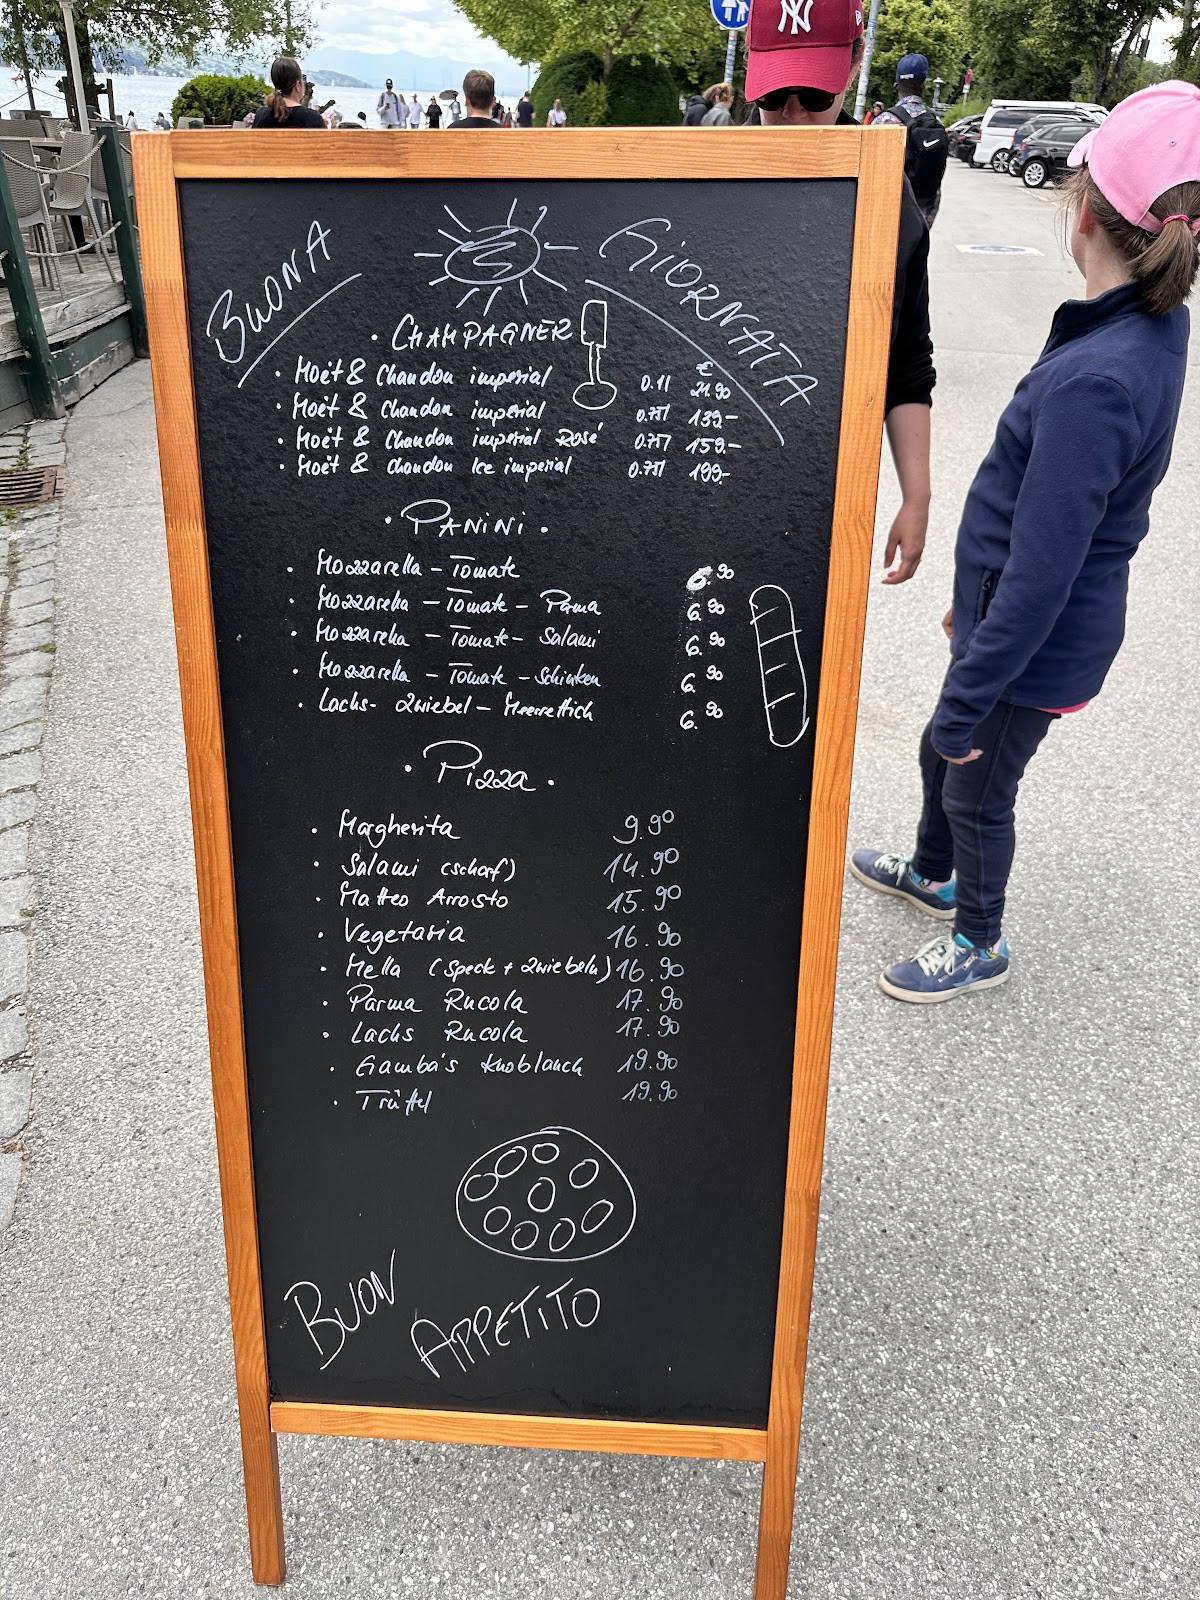 BUONA GIORNATA
• CHAMPAGNER •
€
• Moët & Chandon imperial 0.1l 21.90
• Moët & Chandon imperial 0.75l 139.-
• Moët & Chandon imperial Rosé 0.75l 159.-
• Moët & Chandon Ice imperial 0.75l 199.-
• PANINI •
• Mozzarella - Tomate 6.90
• Mozzarella - Tomate - Parma 6.90
• Mozzarella - Tomate - Salami 6.90
• Mozzarella - Tomate - Schinken 6.90
• Lachs - Zwiebel - Meerrettich 6.90
• Pizza •
• Margherita 9.90
• Salami (scharf) 14.90
• Matteo Arrosto 15.90
• Vegetaria 16.90
• Mella (Speck + Zwiebeln) 16.90
• Parma Rucola 17.90
• Lachs Rucola 17.90
• Gamba's Knoblauch 19.90
• Trüffel 19.90
BUON APPETITO
NY